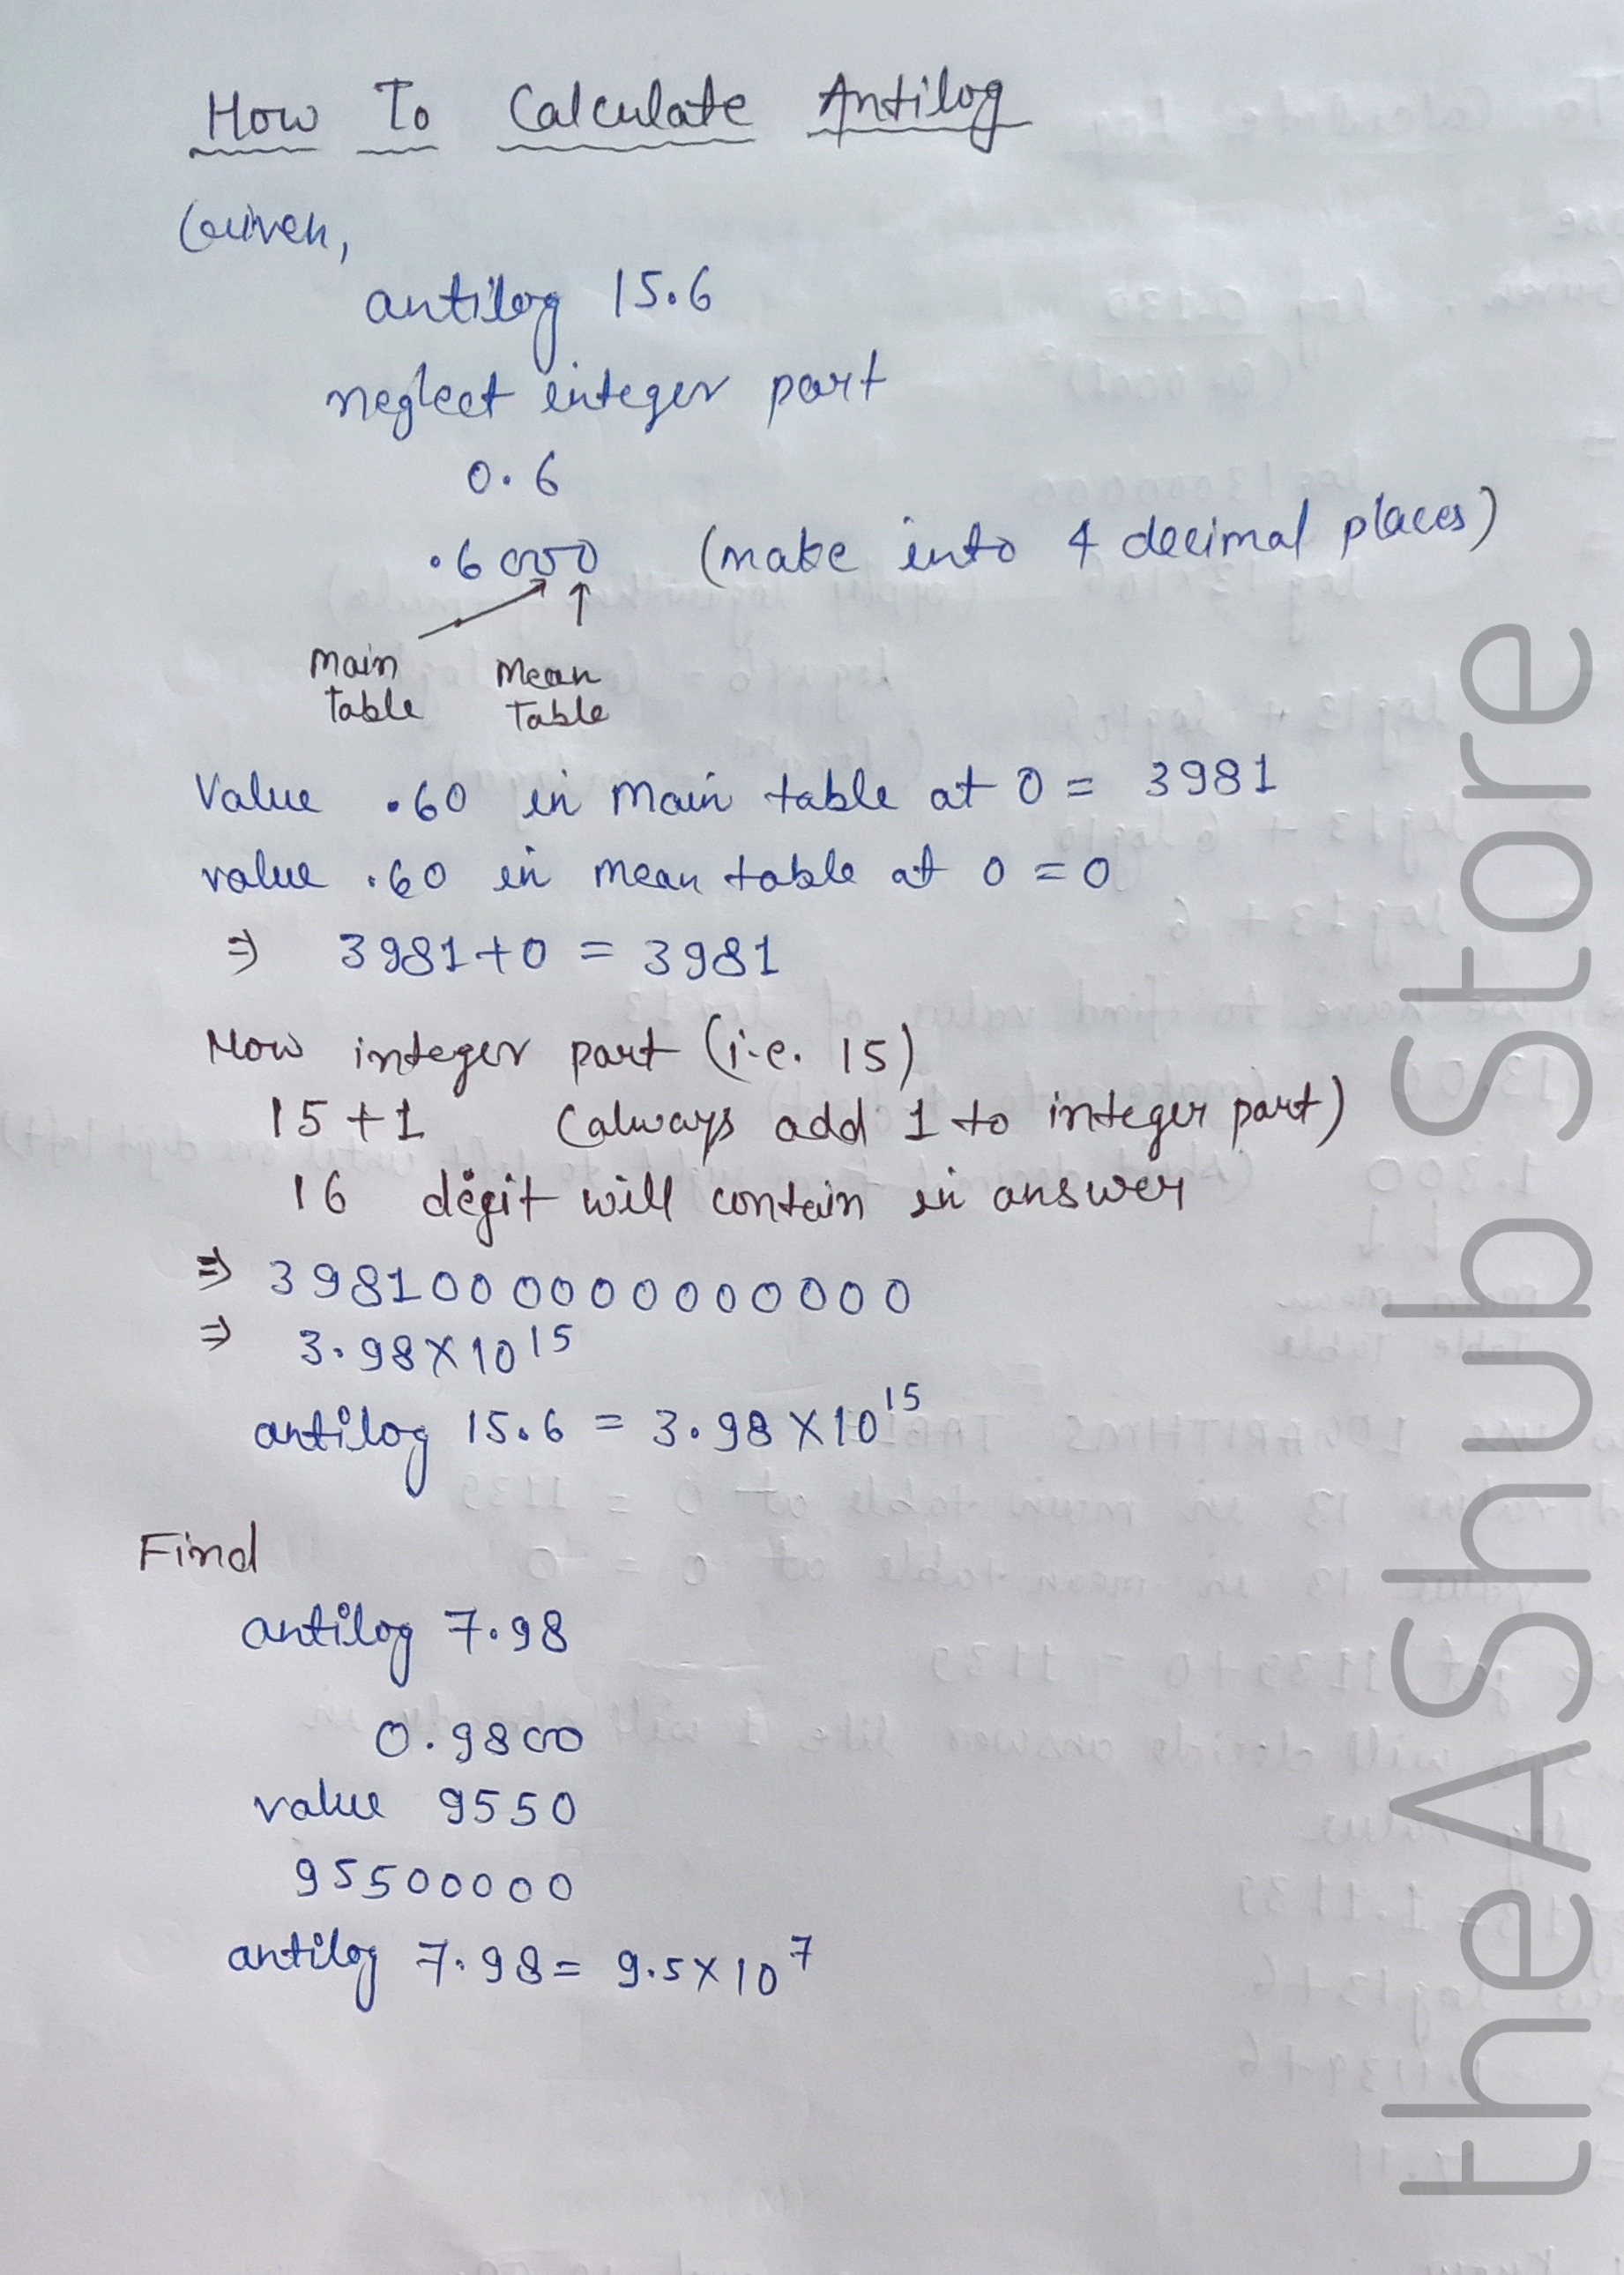 How To Calculate Antilog
Given,
antilog 15.6
neglect integer part
0.6
.6000 (make into 4 decimal places)
Main table
Mean Table
Value .60 in Main table at 0 = 3981
value .60 in mean table at 0 = 0
⇒ 3981+0 = 3981
Now integer part (i.e. 15)
15+1 (always add 1 to integer part)
16 digit will contain in answer
⇒ 3981000000000000
⇒ 3.98×10¹⁵
antilog 15.6 = 3.98×10¹⁵
Find
antilog 7.98
0.9800
value 9550
95500000
antilog 7.98 = 9.5×10⁷
theAShub Store